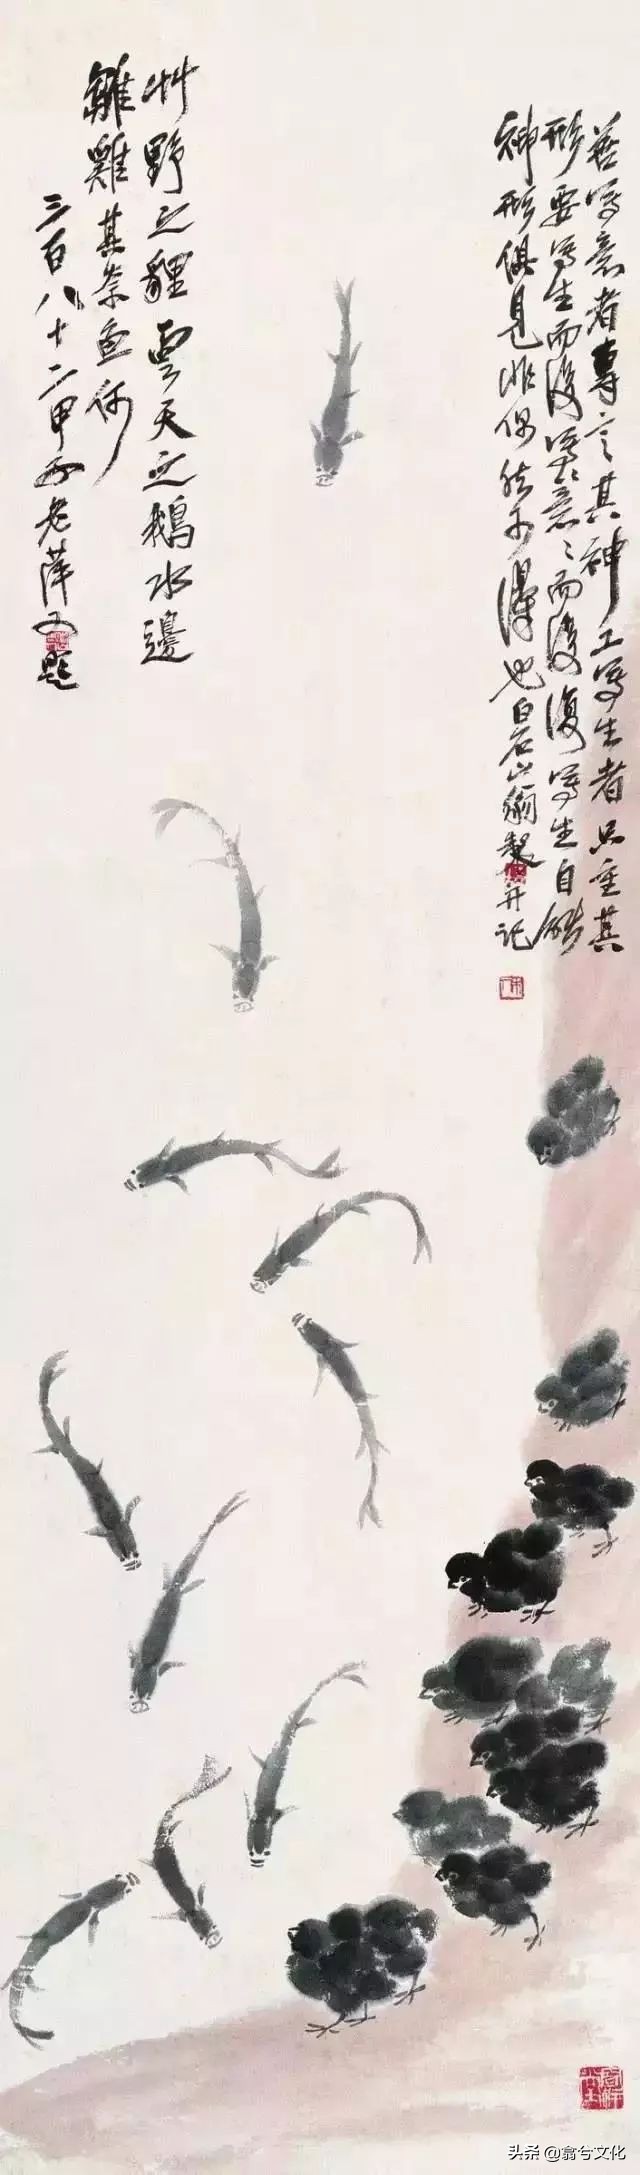 善写意者專言其神工写生者只重其
形要写生而後写意〻而後復写生自能
神形俱見非偶然可得也白石山翁製并記
艸野之貍雲天之鵝水邊
雛雞其奈魚何
三百八十二甲子老萍又題
头条 @翕兮文化